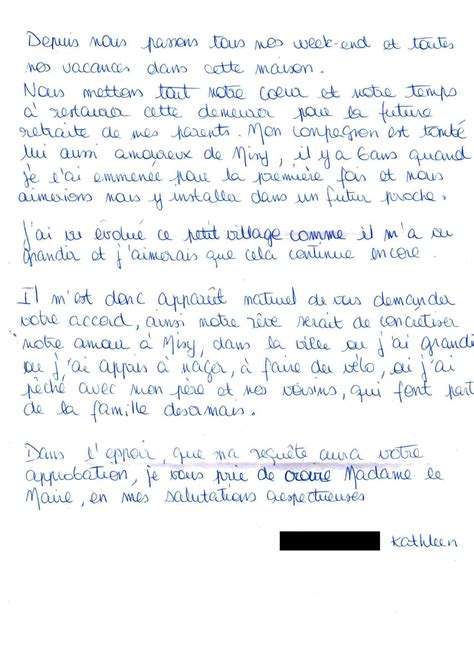 Depuis nous passons tous nos week-end et toutes
nos vacances dans cette maison.
Nous mettons tout notre coeur et notre temps
à restaurer cette demeure pour la future
retraite de mes parents. Mon compagnon est tombé
lui aussi amoureux de Misy, il y a 6 ans quand
je l'ai emmenée pour la première fois et nous
aimerions nous y installer dans un futur proche.
J'ai vu évolué ce petit village comme il m'a vu
grandir et j'aimerais que cela continue encore.
Il m'est donc apparût naturel de vous demander
votre accord, ainsi notre rêve serait de concrétiser
notre amour à Misy, dans la ville ou j'ai grandi
ou j'ai appris à nager, à faire du vélo, où j'ai
pêché avec mon père et nos voisins, qui font part
de la famille desormais.
Dans l'espoir, que ma requête aura votre
approbation, je vous prie de croire Madame le
Maire, en mes salutations respectueuses
Kathleen